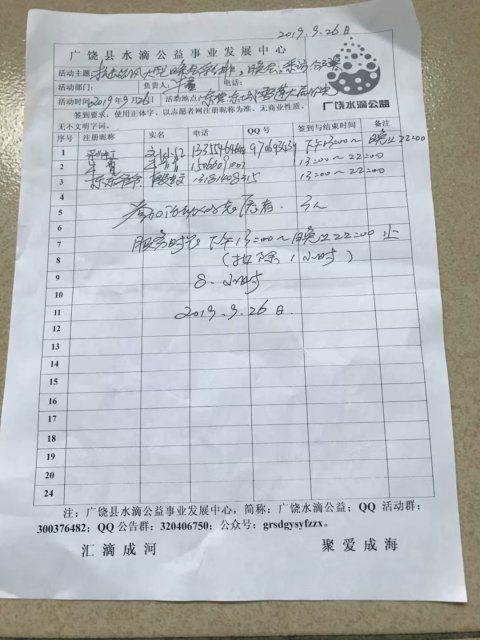 2019.9.26日
广饶县水滴公益事业发展中心
活动主题:
活动部门: 负责人: 电话:
活动时间: 2019年9月26日 活动地点:
签到要求:使用正体字、以志愿者网注册昵称为准、无商业性质、
无不文明字词。
广饶水滴公益
序号 注册昵称 实名 电话 QQ号 签到与结束时间 备注
1 下午13:00~晚上22:00
2 13:00~22:00
3 13:00~22:00
4
5 参加活动志愿者: 3人
6
7 服务时间下午13:00~晚上22:00止
8 (扣除1小时)
9 8.小时
10
11 2019.9.26日.
12
13
14
15
16
17
18
19
20
21
22
23
24
注:广饶县水滴公益事业发展中心,简称:广饶水滴公益;QQ 活动群:
300376482;QQ 公告群:320406750;公众号:grsdgysyfzzx。
汇滴成河 聚爱成海